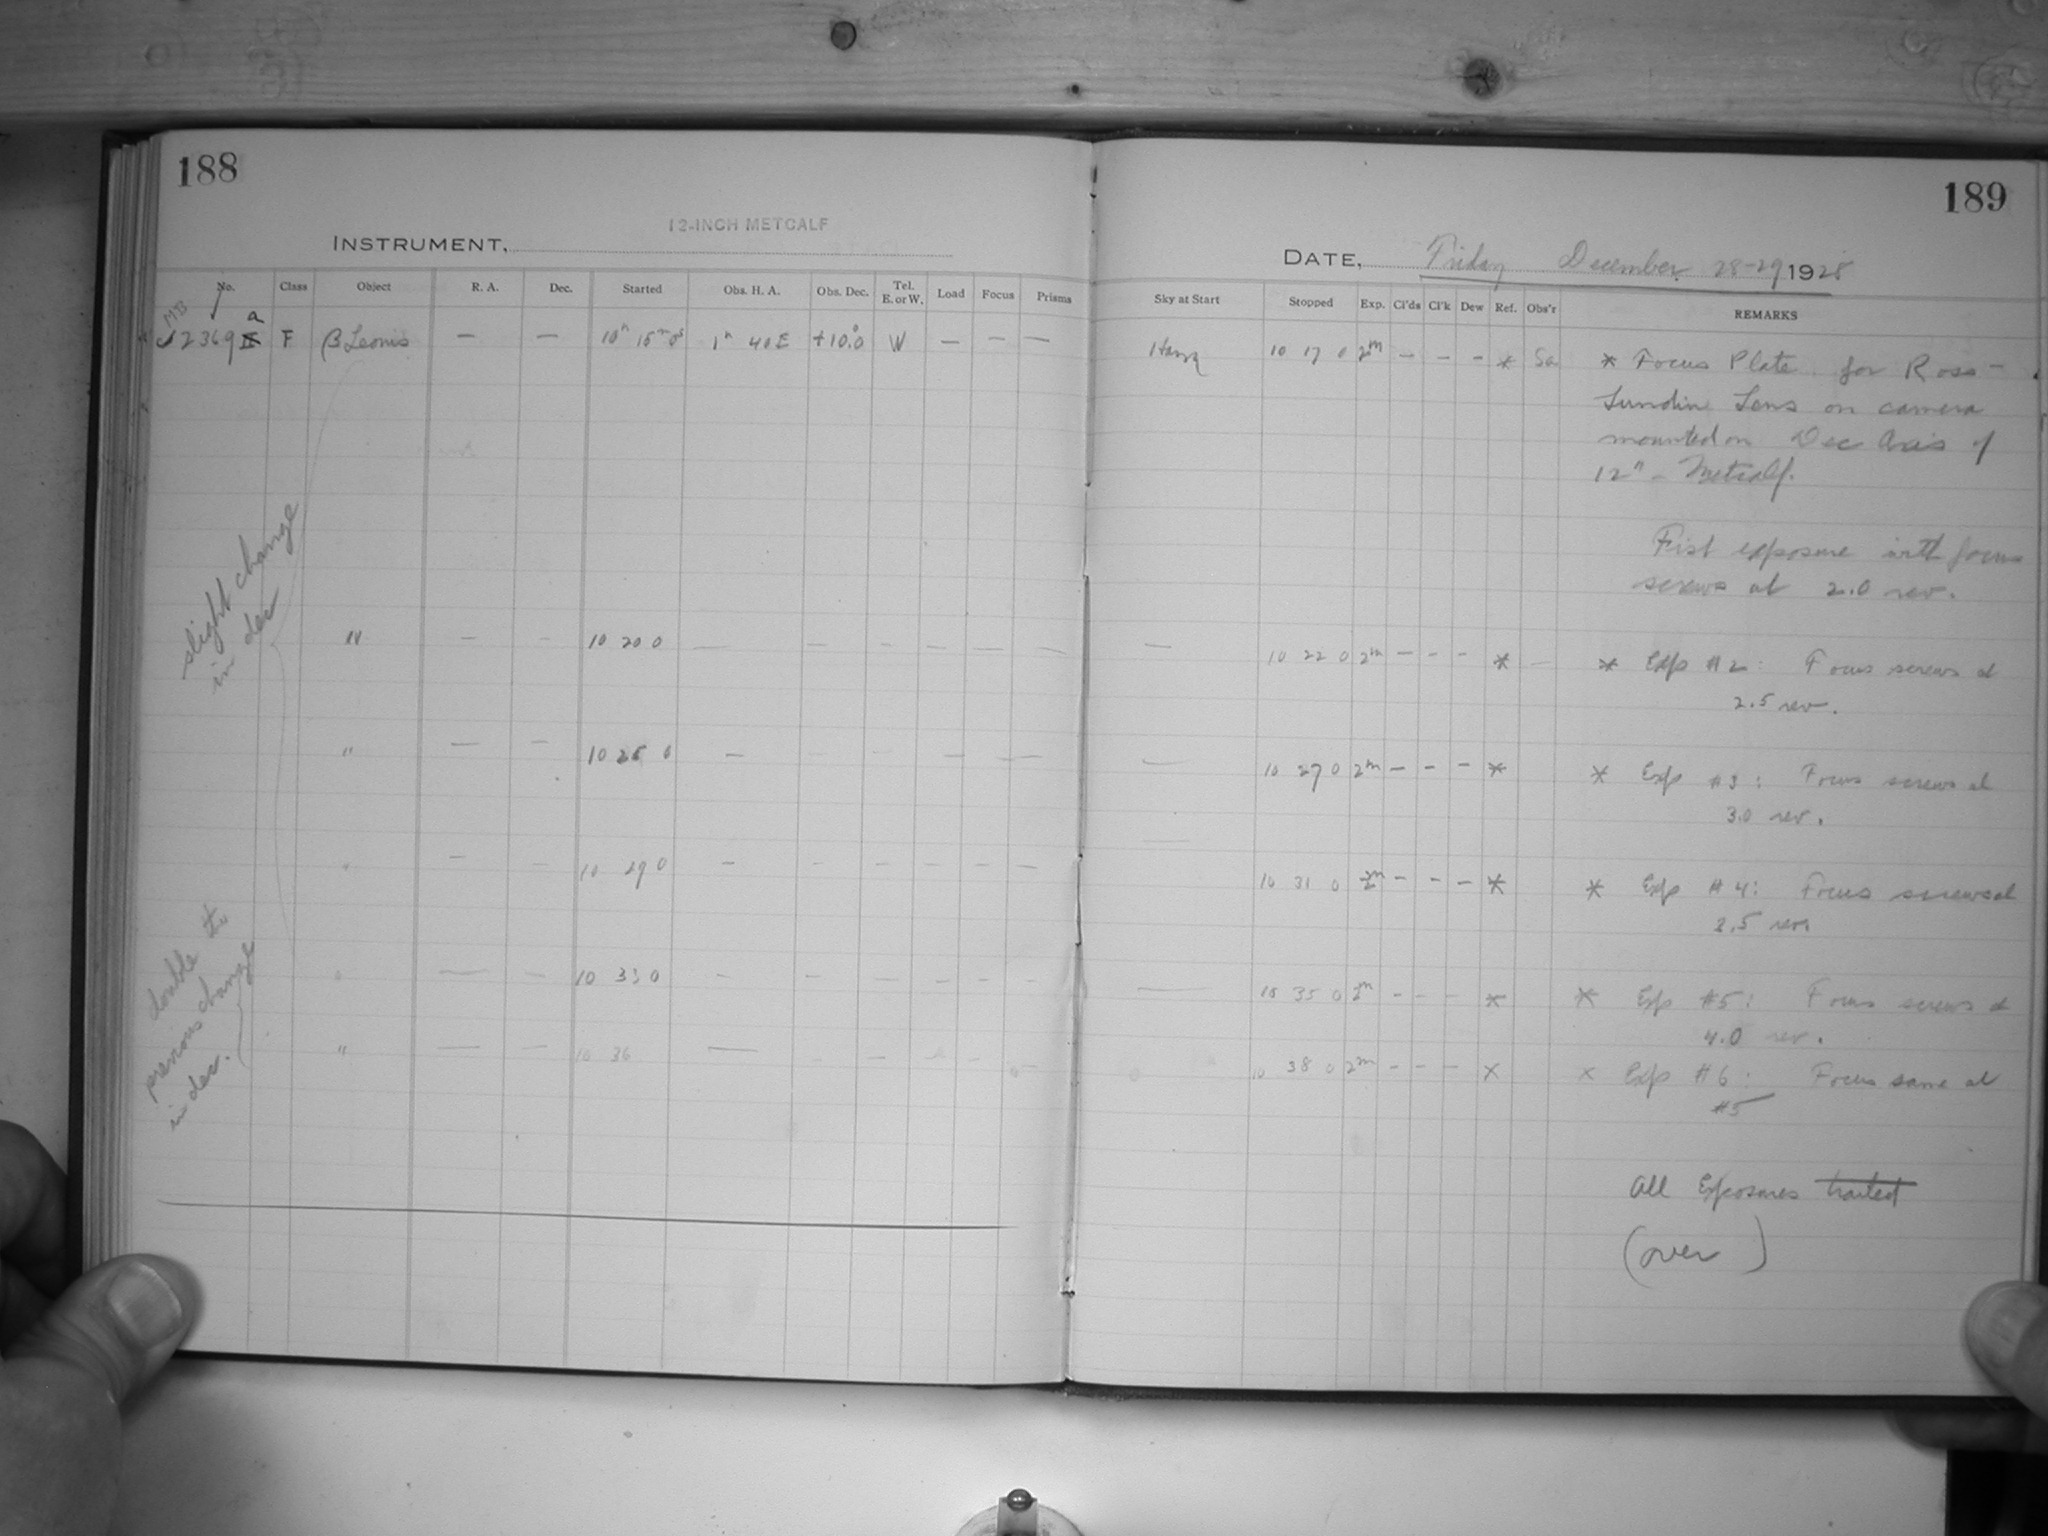 188
12-INCH METCALF
INSTRUMENT,
No. Class Object R. A. Dec. Started Obs. H. A. Obs. Dec. Tel. E. or W. Load Focus Prisms
MB
a
12369 F β Leonis — — 10h 15m 0s 1h 40 E +10.0° W — — —
slight change
in dec
" — — 10 20 0 — — — — — —
" — — 10 25 0 — — — — — —
" — — 10 29 0 — — — — — —
" — — 10 33 0 — — — — — —
" — — 10 36 — — — — — —
double the
previous change
in dec.
189
DATE, Friday December 28-29 1928
Sky at Start Stopped Exp. Cl'ds Cl'k Dew Ref. Obs'r REMARKS
Hazy 10 17 0 2m — — — * * Focus Plate for Ross-
Lundin Lens on camera
mounted on Dec Axis of
12" - Metcalf.
Fist exposure with focus
screws at 2.0 rev.
— 10 22 0 2m — — — * — * Exp #2: Focus screws at
2.5 rev.
— 10 27 0 2m — — — * * Exp #3: Focus screws at
3.0 rev.
— 10 31 0 2m — — — * * Exp #4: Focus screws at
3.5 rev.
— 10 35 0 2m — — — * * Exp #5: Focus screws at
4.0 rev.
10 38 0 2m — — — × × Exp #6: Focus same at
#5
All Exposures trailed
(over)